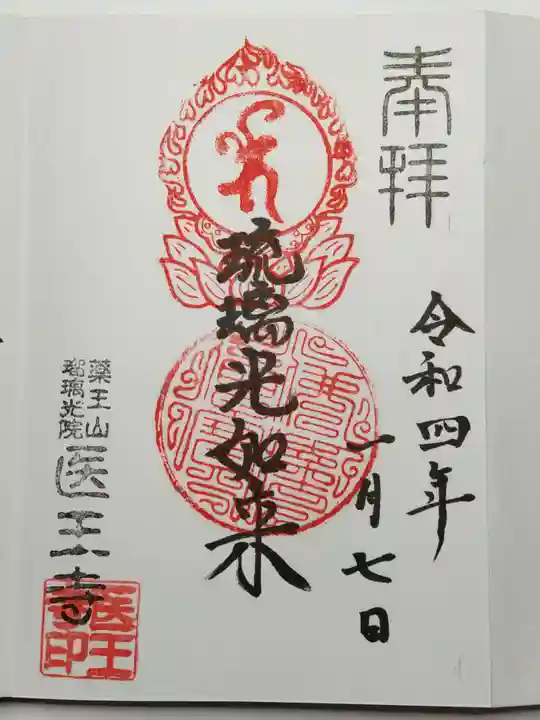 奉拝
令和四年
一月七日
琉璃光如来
薬王山
瑠璃光院
医王寺
医王寺印